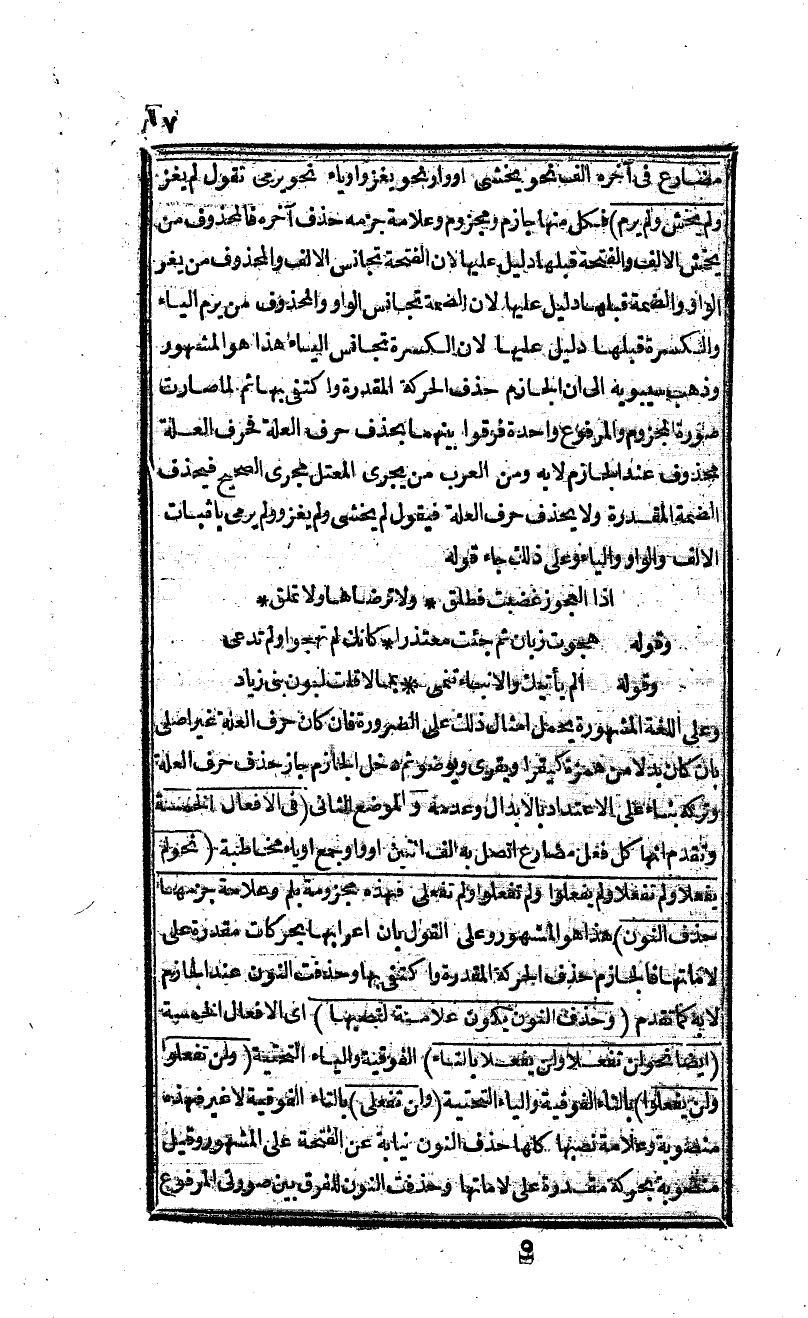 ١٧
مضارع فى آخره الف نحو يخشى او واو نحو يغزو او ياء نحو يرمى تقول لم يغز
ولم يخش ولم يرم) فكل منها جازم ومجزوم وعلامة جزمه حذف آخره فالمحذوف من
يخش الالف والفتحة قبلها دليل عليها لان الفتحة تجانس الالف والمحذوف من يغز
الواو والضمة قبلها دليل عليها لان الضمة تجانس الواو والمحذوف من يرم الياء
والكسرة قبلها دليل عليها لان الكسرة تجانس الياء هذا هو المشهور
وذهب سيبويه الى ان الجازم حذف الحركة المقدرة واكتفى بها ثم لما صارت
صورة المجزوم والمرفوع واحدة فرقوا بينهما بحذف حرف العلة فحرف العلة
محذوف عند الجازم لا به ومن العرب من يجرى المعتل مجرى الصحيح فيحذف
الضمة المقدرة ولا يحذف حرف العلة فيقول لم يخشى ولم يغزو ولم يرمى باثبات
الالف والواو والياء وعلى ذلك جاء قوله
اذا العجوز غضبت فطلق * ولا ترضاها ولا تملق *
وقوله هجوت زبان ثم جئت معتذرا * كانك لم تهجوا ولم تدعى
وقوله الم يأتيك والانباء تنمى * بما لاقت لبون بنى زياد
وعلى اللغة المشهورة يحمل امثال ذلك على الضرورة فان كان حرف العلة غير اصلى
بان كان بدلا من همزة كيقرا ويقرى ويوضو ثم دخل الجازم جاز حذف حرف العلة
وتركه بناء على الاعتداد بالابدال وعدمه و الموضع الثانى (فى الافعال الخمسة
وتقدم انها كل فعل مضارع اتصل به الف اثنين او واو جمع او ياء مخاطبة (نحو لم
يفعلا ولم تفعلا ولم يفعلوا ولم تفعلوا ولم تفعلى فهذه مجزومة بلم وعلامة جزمها
حذف النون) هذا هو المشهور وعلى القول بان اعرابها بحركات مقدرة على
لاماتها فالجازم حذف الحركة المقدرة واكتفى بها وحذفت النون عند الجازم
لا به كما تقدم (وحذف النون يكون علامة لنصبها) اى الافعال الخمسة
(ايضا نحو لن تفعلا ولن يفعلا بالتاء) الفوقية والياء التحتية (ولن تفعلوا
ولن يفعلوا) بالتاء الفوقية والياء التحتية (ولن تفعلى) بالتاء الفوقية لا غير فهذه
منصوبة وعلامة نصبها كلها حذف النون نيابة عن الفتحة على المشهور وقيل
منصوبة بحركة مقدرة على لاماتها وحذفت النون للفرق بين صورتى المرفوع